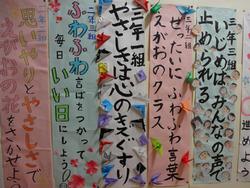 三年三組
いじめはみんなの声で
止められる
ぜったいに ふわふわ言葉
えがおのクラス
三年一組
やさしさは心のきずぐすり
二年三組
ふわふわ言ばをつかって
毎日いい日にしよう
思いやりとやさしさで
をさかせよう